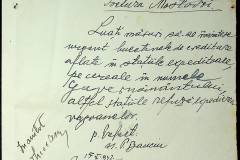 Pretura Mostoboi
Luați măsuri să-ne înainteze
urgent buletinele de creditare
aflate în stațiile expeditoare,
pe cereale în numele
Guvernământului,
altfel stațiile refuză expedierea
vagoanelor.
p. Prefect